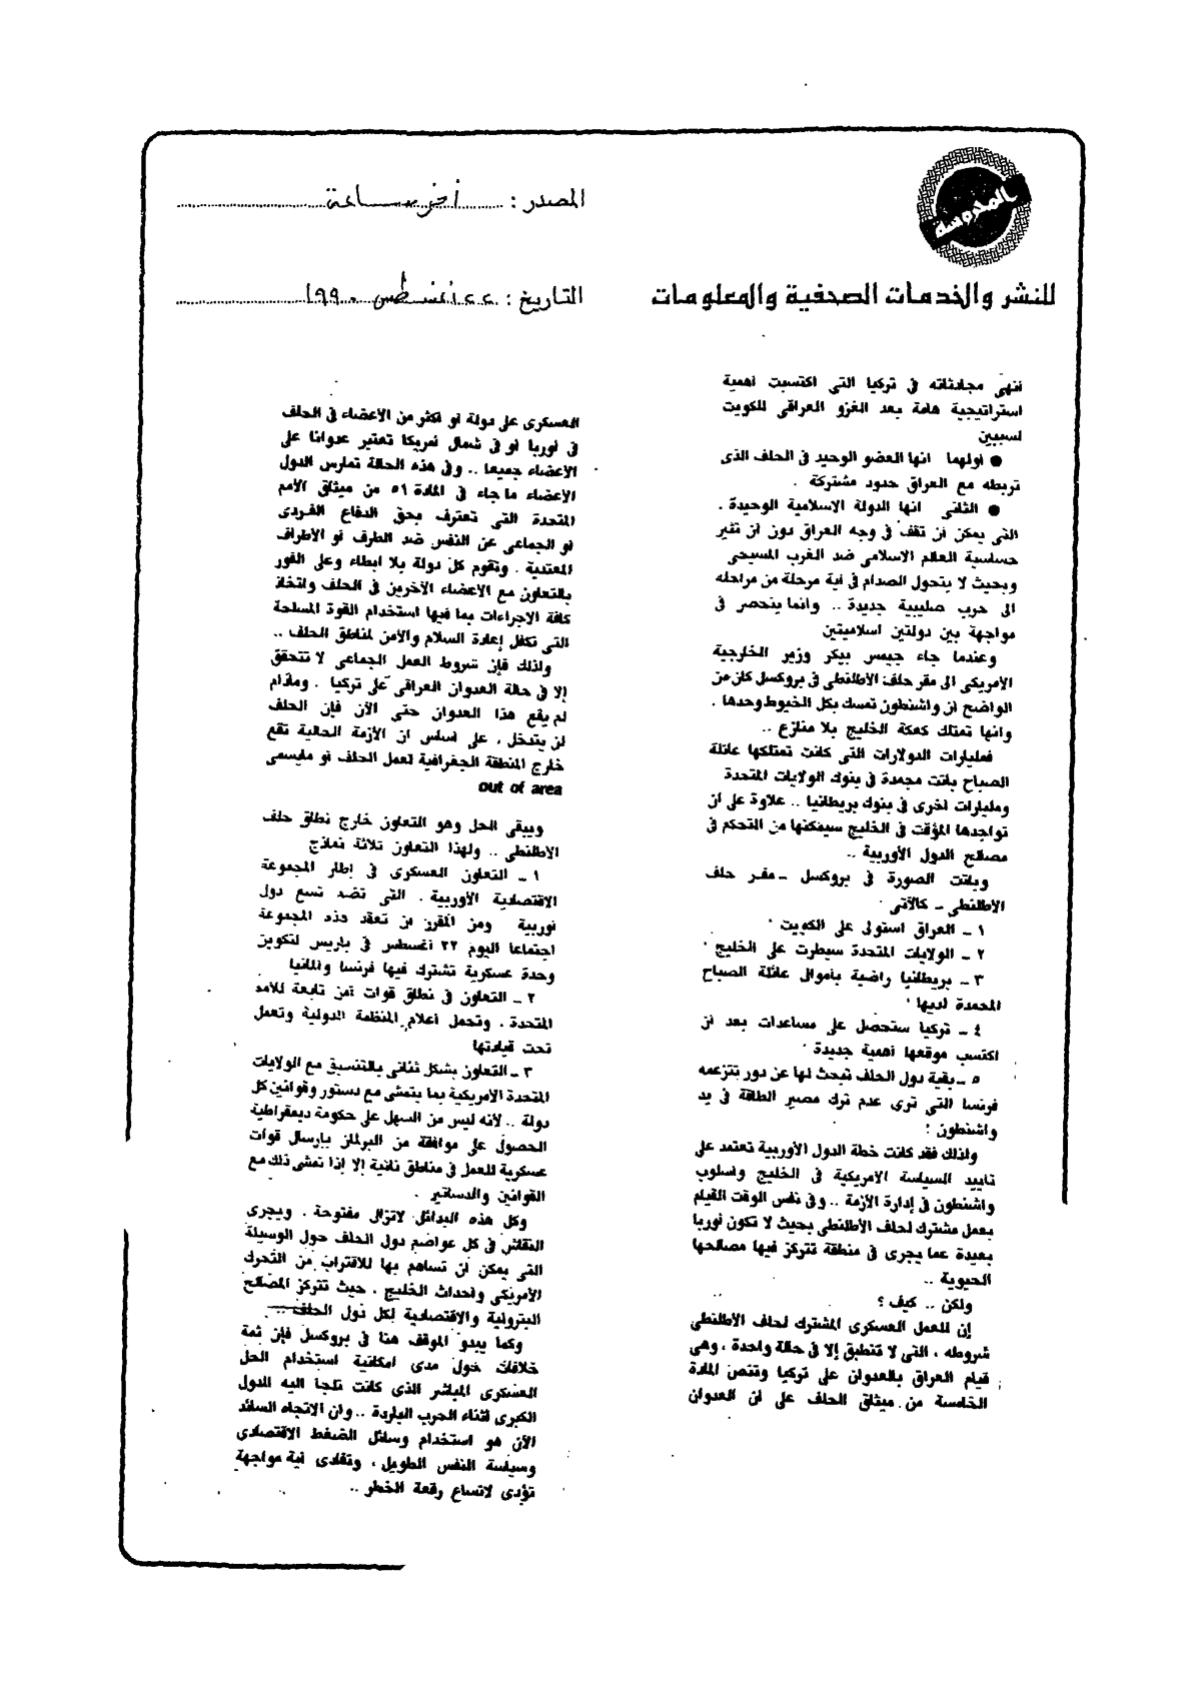 المحروسة
للنشر والخدمات الصحفية والمعلومات
المصدر : أخر ساعة
التاريخ : ٢٢ أغسطس ١٩٩٠
أنهى محادثاته فى تركيا التى اكتسبت أهمية
استراتيجية هامة بعد الغزو العراقى للكويت
لسببين
● أولهما انها العضو الوحيد فى الحلف الذى
تربطه مع العراق حدود مشتركة .
● الثانى انها الدولة الاسلامية الوحيدة .
التى يمكن أن تقف فى وجه العراق دون أن تثير
حساسية العالم الاسلامى ضد الغرب المسيحى
وبحيث لا يتحول الصدام فى أية مرحلة من مراحله
الى حرب صليبية جديدة .. وانما ينحصر فى
مواجهة بين دولتين اسلاميتين
وعندما جاء جيمس بيكر وزير الخارجية
الأمريكى الى مقر حلف الأطلنطى فى بروكسل كان من
الواضح أن واشنطون تمسك بكل الخيوط وحدها .
وانها تمتلك كعكة الخليج بلا منازع ..
فمليارات الدولارات التى كانت تمتلكها عائلة
الصباح باتت مجمدة فى بنوك الولايات المتحدة
ومليارات أخرى فى بنوك بريطانيا .. علاوة على أن
تواجدها المؤقت فى الخليج سيمكنها من التحكم فى
مصالح الدول الأوربية ..
وباتت الصورة فى بروكسل ـ مقر حلف
الأطلنطى ـ كالآتى
١ ـ العراق استولى على الكويت
٢ ـ الولايات المتحدة سيطرت على الخليج
٣ ـ بريطانيا راضية بأموال عائلة الصباح
المجمدة لديها
٤ ـ تركيا ستحصل على مساعدات بعد أن
اكتسب موقعها أهمية جديدة
٥ ـ بقية دول الحلف تبحث لها عن دور تتزعمه
فرنسا التى ترى عدم ترك مصير الطاقة فى يد
واشنطون !
ولذلك فقد كانت خطة الدول الأوربية تعتمد على
تاييد السياسة الأمريكية فى الخليج وأسلوب
واشنطون فى إدارة الأزمة .. وفى نفس الوقت القيام
بعمل مشترك لحلف الأطلنطى بحيث لا تكون أوربا
بعيدة عما يجرى فى منطقة تتركز فيها مصالحها
الحيوية ..
ولكن .. كيف ؟
إن للعمل العسكرى المشترك لحلف الأطلنطى
شروطه ، التى لا تنطبق إلا فى حالة واحدة ، وهى
قيام العراق بالعدوان على تركيا وتنص المادة
الخامسة من ميثاق الحلف على أن العدوان
العسكرى على دولة أو أكثر من الأعضاء فى الحلف
فى أوربا أو فى شمال أمريكا تعتبر عدوانا على
الأعضاء جميعا .. وفى هذه الحالة تمارس الدول
الأعضاء ما جاء فى المادة ٥١ من ميثاق الأمم
المتحدة التى تعترف بحق الدفاع الفردى
أو الجماعى عن النفس ضد الطرف أو الأطراف
المعتدية . وتقوم كل دولة بلا ابطاء وعلى الفور
بالتعاون مع الأعضاء الآخرين فى الحلف واتخاذ
كافة الإجراءات بما فيها استخدام القوة المسلحة
التى تكفل إعادة السلام والأمن لمناطق الحلف ..
ولذلك فإن شروط العمل الجماعى لا تتحقق
إلا فى حالة العدوان العراقى على تركيا . ومادام
لم يقع هذا العدوان حتى الآن فإن الحلف
لن يتدخل ، على أساس أن الأزمة الحالية تقع
خارج المنطقة الجغرافية لعمل الحلف أو مايسمى
out of area
ويبقى الحل وهو التعاون خارج نطاق حلف
الأطلنطى .. ولهذا التعاون ثلاثة نماذج
١ ـ التعاون العسكرى فى إطار المجموعة
الاقتصادية الأوربية . التى تضم تسع دول
أوربية ومن المقرر أن تعقد هذه المجموعة
اجتماعا اليوم ٢٢ أغسطس فى باريس لتكوين
وحدة عسكرية تشترك فيها فرنسا وألمانيا
٢ ـ التعاون فى نطاق قوات أمن تابعة للأمم
المتحدة . وتحمل أعلام المنظمة الدولية وتعمل
تحت قيادتها
٣ ـ التعاون بشكل ثنائى بالتنسيق مع الولايات
المتحدة الأمريكية بما يتمشى مع دستور وقوانين كل
دولة .. لأنه ليس من السهل على حكومة ديمقراطية
الحصول على موافقة من البرلمان بإرسال قوات
عسكرية للعمل فى مناطق نائية إلا إذا تمشى ذلك مع
القوانين والدساتير .
وكل هذه البدائل لاتزال مفتوحة . ويجرى
النقاش فى كل عواصم دول الحلف حول الوسيلة
التى يمكن أن تساهم بها للاقتراب من التحرك
الأمريكى وأحداث الخليج . حيث تتركز المصالح
البترولية والاقتصادية لكل دول الحلف ..
وكما يبدو الموقف هنا فى بروكسل فإن ثمة
خلافات حول مدى امكانية استخدام الحل
العسكرى المباشر الذى كانت تلجأ اليه الدول
الكبرى أثناء الحرب الباردة .. وان الاتجاه السائد
الآن هو استخدام وسائل الضغط الاقتصادى
وسياسة النفس الطويل ، وتفادى أية مواجهة
تؤدى لاتساع رقعة الخطر ..